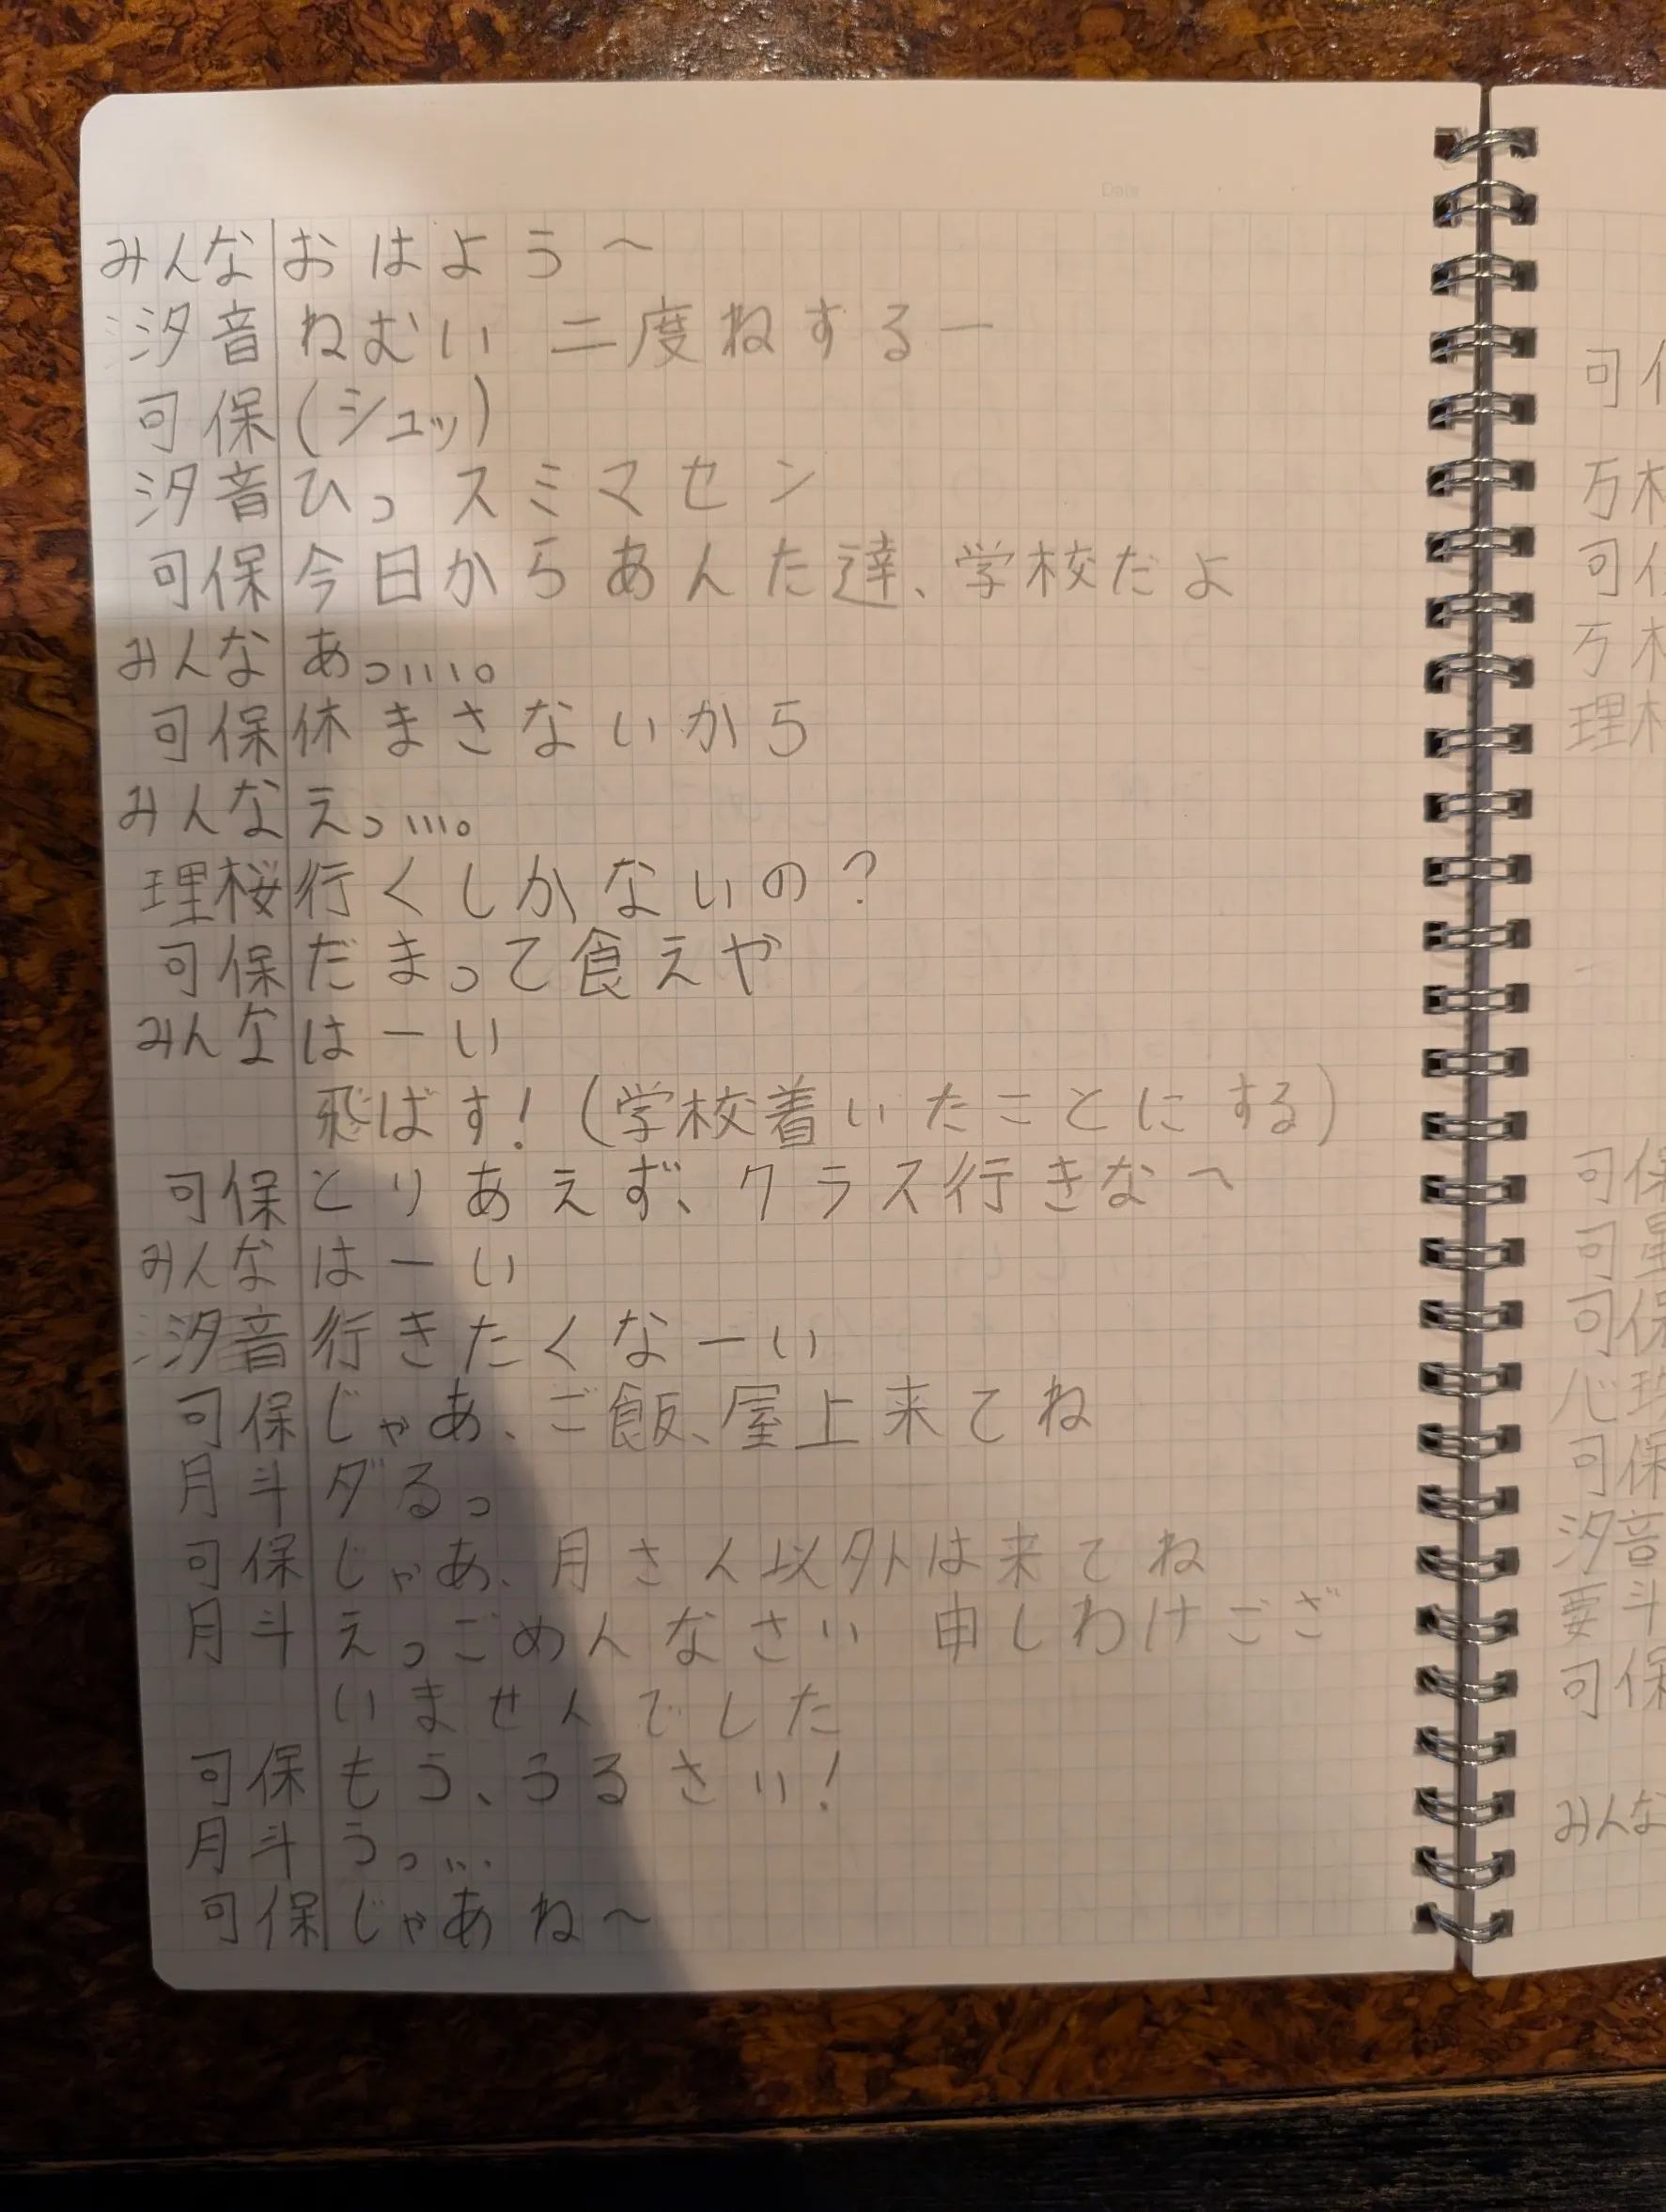 みんな おはよう〜
汐音 ねむい 二度ねするー
可保 (シュッ)
汐音 ひっスミマセン
可保 今日からあんた達、学校だよ
みんな あっ....。
可保 休まさないから
みんな えっ....。
理桜 行くしかないの?
可保 だまって食えや
みんな はーい
飛ばす!(学校着いたことにする)
可保 とりあえず、クラス行きな〜
みんな はーい
汐音 行きたくなーい
可保 じゃあ、ご飯、屋上来てね
月斗 ダるっ
可保 じゃあ、月さん以外は来てね
月斗 えっごめんなさい 申しわけござ
いませんでした
可保 もう、うるさい!
月斗 うっ...
可保 じゃあね〜
可
万
可
万
理
可保
可
可保
心
可保
汐音
要斗
可保
みんな